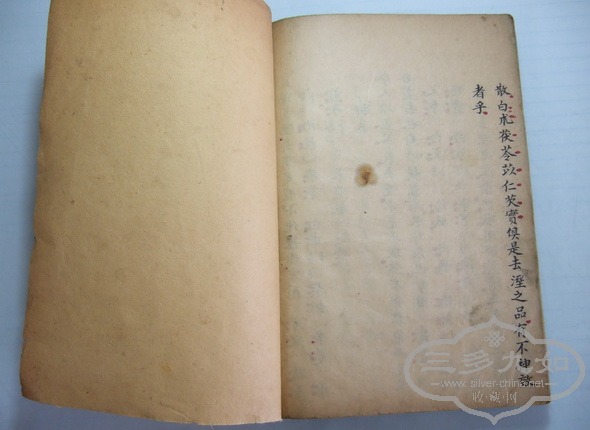 散白朮茯苓苡仁芡實俱是去溼之品有不神效
者乎
三多九如
www.silver-china.net
收藏网